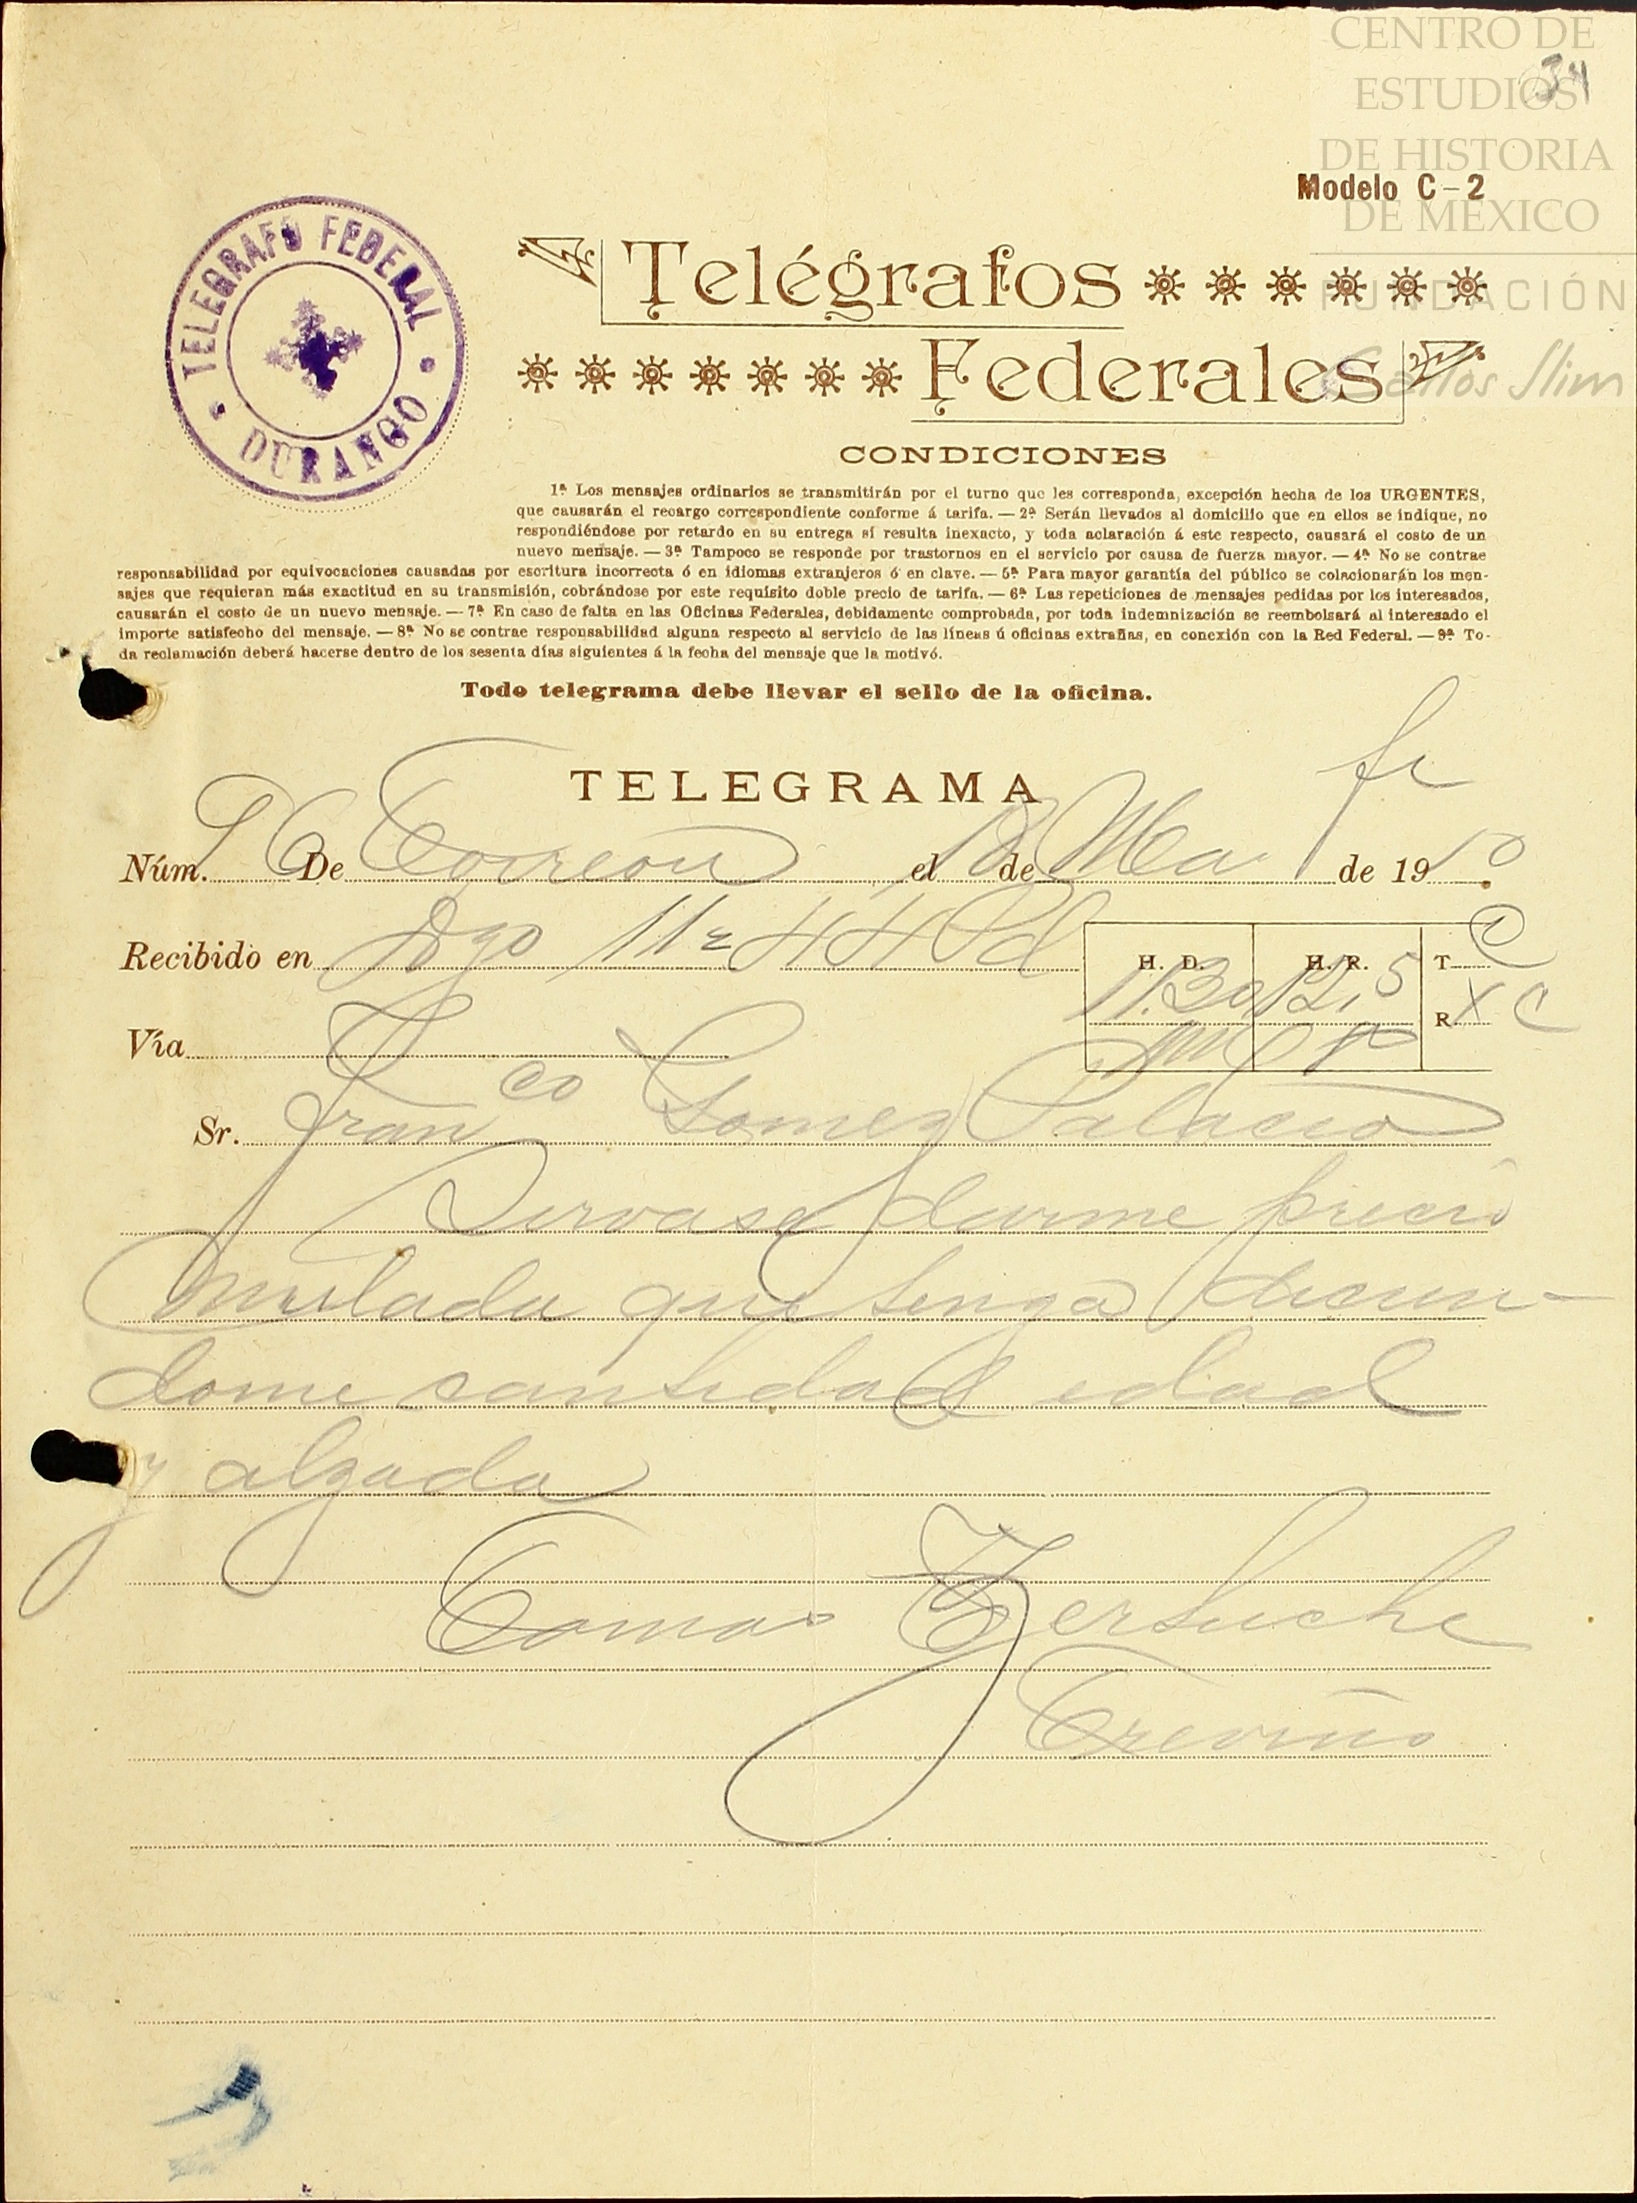 CENTRO DE
ESTUDIOS
DE HISTORIA
DE MÉXICO
FUNDACIÓN
Carlos Slim
34
Modelo C-2
TELEGRAFO FEDERAL
DURANGO
Telégrafos
Federales
CONDICIONES
1ª Los mensajes ordinarios se transmitirán por el turno que les corresponda, excepción hecha de los URGENTES,
que causarán el recargo correspondiente conforme á tarifa. — 2ª Serán llevados al domicilio que en ellos se indique, no
respondiéndose por retardo en su entrega si resulta inexacto, y toda aclaración á este respecto, causará el costo de un
nuevo mensaje. — 3ª Tampoco se responde por trastornos en el servicio por causa de fuerza mayor. — 4ª No se contrae
responsabilidad por equivocaciones causadas por escritura incorrecta ó en idiomas extranjeros ó en clave. — 5ª Para mayor garantía del público se colacionarán los men-
sajes que requieran más exactitud en su transmisión, cobrándose por este requisito doble precio de tarifa. — 6ª Las repeticiones de mensajes pedidas por los interesados,
causarán el costo de un nuevo mensaje. — 7ª En caso de falta en las Oficinas Federales, debidamente comprobada, por toda indemnización se reembolsará al interesado el
importe satisfecho del mensaje. — 8ª No se contrae responsabilidad alguna respecto al servicio de las líneas ú oficinas extrañas, en conexión con la Red Federal. — 9ª To-
da reclamación deberá hacerse dentro de los sesenta días siguientes á la fecha del mensaje que la motivó.
Todo telegrama debe llevar el sello de la oficina.
TELEGRAMA
Núm. De Torreon el 18 de de 1910
Recibido en Dgo
H. D. H. R. T
11.30 12,5 R
Vía
Sr. Franco Gomez Palacio
Sirvase darme precio
mulada que tenga dicien-
dome cantidad edad
y alzada
Tomas Zertuche
Treviño